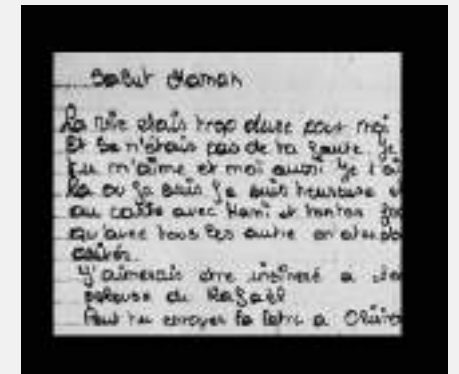 Salut Maman
La vie étais trop dure pour moi
Et se n'étais pas de ta faute. Je
tu m'aime et moi aussi je t'ai
La ou je suis je suis heureuse
au avec Mami et tonton
qu'avec tous les autre on
J'aimerais être incinéré a
pelouse du
Peut tu envoyer la lettre a Olivier